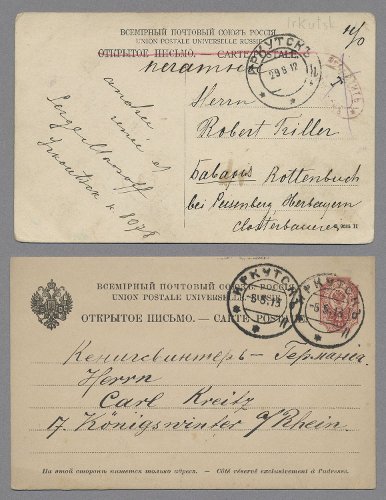 Irkutsk
ВСЕМІРНЫЙ ПОЧТОВЫЙ СОЮЗЪ РОССІЯ.
UNION POSTALE UNIVERSELLE RUSSIE
ОТКРЫТОЕ ПИСЬМО. — CARTE POSTALE
ИРКУТСКЪ
29 8 12
T
Herrn
Robert Triller
Баварія Rottenbuch
bei Peissenberg Oberbayern
ВСЕМІРНЫЙ ПОЧТОВЫЙ СОЮЗЪ. РОССІЯ.
UNION POSTALE UNIVERSELLE.
ОТКРЫТОЕ ПИСЬМО. — CARTE POSTALE
ИРКУТСКЪ
-8 8 13
ИРКУТСКЪ
-8 8 13
Кенигсвинтеръ — Германія
Herrn
Carl Kreitz
17. Königswinter a/Rhein.
На этой сторонѣ пишется только адресъ. — Côté réservé exclusivement à l'adresse.